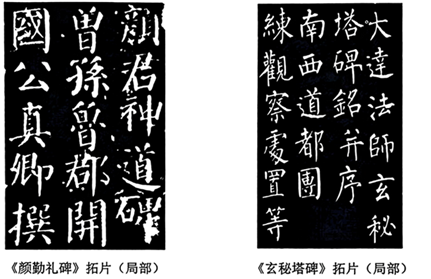 顏君神道碑
曾孫魯郡開
國公真卿撰
《颜勤礼碑》拓片（局部）
大達法師玄秘
塔碑銘并序
南西道都團
練觀察處置等
《玄秘塔碑》拓片（局部）